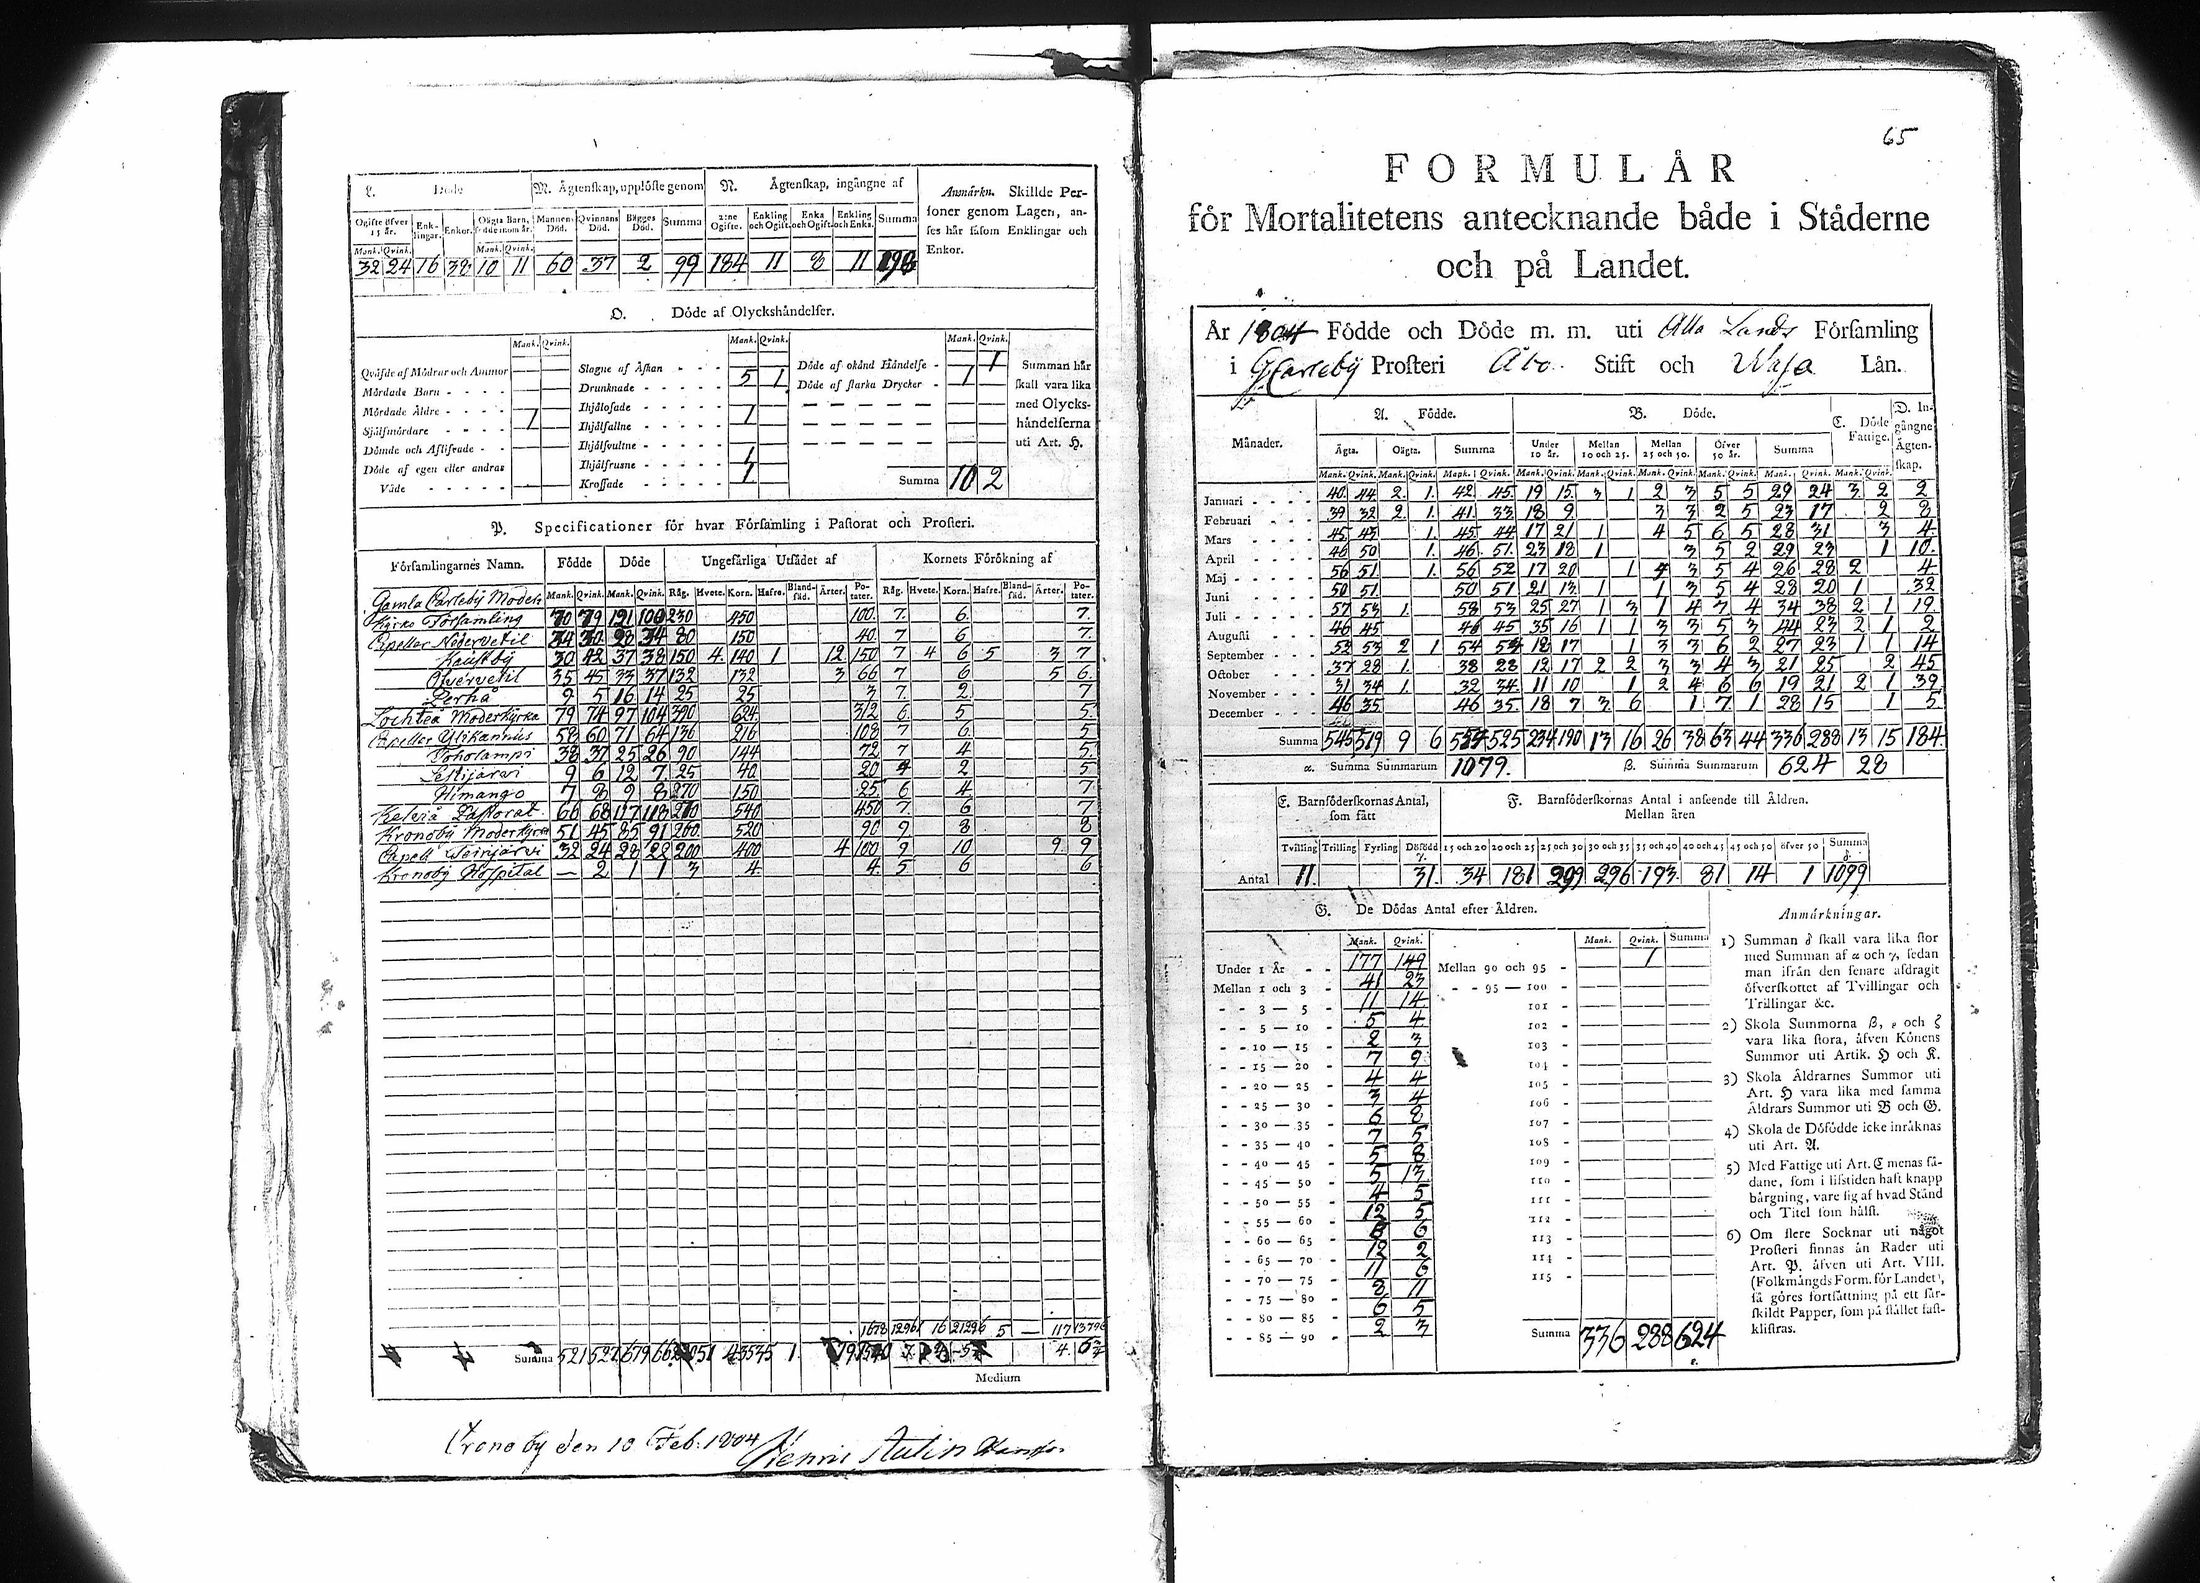 L. Döde
M. Ägtenskap, upplöste genom
N. Ägtenskap, ingångne af
Anmärkn. Skillde Personer
soner genom Lagen, an-
ses här såsom Enklingar och
Enkor.
Ogifte öfver 15 år. Enklingar. Enkor. Oägta Barn, födde inom år. Mannens Död. Qvinnans Död. Bägges Död. Summa 2:ne Ogifte. Enkling och Ogift. Enka och Ogift. Enkling och Enka. Summa
Mank. Qvink. Mank. Qvink.
32 24 16 38 10 11 60 37 2 99 184 11 8 11
O. Döde af Olyckshändelser.
Mank. Qvink. Mank. Qvink. Mank. Qvink.
Qväfde af Mödrar och Ammor
Mördade Barn
Mördade Äldre
Självmördare 1
Dömde och Aflifvade
Döde af egen eller andras
Våde
Slagne af Åskan
Drunknade 5 1
Ihjälosade
Ihjälfallne 1
Ihjälsvultne
Ihjälfrusne 1
Krossade 1
Döde af okänd Händelse 1
Döde af starka Drycker 1
Summa 10 2
Summan här
skall vara lika
med Olycks-
händelserna
uti Art. H.
P. Specificationer för hvar Församling i Pastorat och Prosteri.
Församlingarnes Namn. Födde Döde Ungefärliga Utsädet af Kornets Förökning af
Mank. Qvink. Mank. Qvink. Råg. Hvete. Korn. Hafre. Blandsäd. Ärter. Potater. Råg. Hvete. Korn. Hafre. Blandsäd. Ärter. Potater.
Gamla Carleby Moder
Kyrko Församling 70 79 121 100 230 450 100. 7. 6. 7.
Capeller Nedervetil 34 30 28 34 80 150 40. 7 6 7.
Kaustby 30 42 37 38 150 4. 140 1 12 150 7 4 6 5 3 7
Öfvervetil 35 45 33 37 132 132 3 66 7 6 5 6.
Perhå 9 5 16 14 25 25 3 7. 2 7
Lochteå Moderkyrka 79 74 97 104 390 624 312 6 5 5
Capeller Ylikannus 58 60 71 64 136 216 108 7 6 5
Toholampi 38 37 25 26 90 144 72 7 4 5.
Lestijärvi 9 6 12 7 25 40 20 4 2 5
Himango 7 8 9 8 270 150 25 6 4 7
Kelviå Pastorat 66 68 117 118 540 450 7. 6 7
Kronoby Moderkyrka 51 45 85 91 260. 520 90 9 8 8
Capell Teirijärvi 32 24 28 22 200 400 4 100 9 10 9. 9
Kronoby Hospital — 2 1 1 3 4. 4. 5 6 6
1678 12961 16 21296 5 — 117 13796
Summa 521 527 679
Medium
Cronoby den 10 Feb. 1804
65
FORMULÅR
för Mortalitetens antecknande både i Städerne
och på Landet.
År 1804 Födde och Döde m. m. uti Alla Lands Församling
i GCarleby Prosteri Åbo Stift och Wasa Län.
Månader. A. Födde. B. Döde. C. Döde Fattige. D. Ingångne Ägtenskap.
Ägta. Oägta. Summa Under 10 år. Mellan 10 och 25. Mellan 25 och 50. Öfver 50 år. Summa
Mank. Qvink. Mank. Qvink. Mank. Qvink. Mank. Qvink. Mank. Qvink. Mank. Qvink. Mank. Qvink. Mank. Qvink. Mank. Qvink.
Januari 40 44 2. 1. 42 45 19 15 3 1 2 3 5 5 29 24 3 2 2
Februari 39 32 2 1. 41 33 18 9 3 3 2 5 23 17 2 8
Mars 45 43 1. 45 44 17 21 1 4 5 6 5 28 31 3 4
April 46 50 1. 46 51 23 18 1 3 5 2 29 23 1 10
Maj 56 51 1. 56 52 17 20 1 4 3 5 4 26 28 2 4
Juni 50 51 50 51 21 13 1 1 3 5 4 28 20 1 32
Juli 57 53 1. 58 53 25 27 1 3 1 4 7 4 34 38 2 1 19
Augusti 46 45 46 45 35 16 1 1 3 3 5 3 44 23 2 1 2
September 52 53 2 1 54 54 18 17 1 3 3 6 2 27 23 1 1 14
October 37 28 1. 38 28 12 17 2 2 3 3 4 3 21 25 2 45
November 31 34 1. 32 34 11 10 1 2 4 6 6 19 21 2 1 39
December 46 35 46 35 18 7 3 6 1 7 1 28 15 1 5
Summa 545 519 9 6 554 525 234 190 13 16 26 38 63 44 336 288 13 15 184
α. Summa Summarum 1079. β. Summa Summarum 624 28
E. Barnföderskornas Antal, som fått
F. Barnföderskornas Antal i anseende till Åldren.
Mellan åren
Tvilling Trilling Fyrling Dödfödd γ. 15 och 20 20 och 25 25 och 30 30 och 35 35 och 40 40 och 45 45 och 50 öfver 50 Summa δ.
Antal 11. 31. 34 181 299 296 193 81 14 1 1099
G. De Dödas Antal efter Åldren.
Mank. Qvink. Mank. Qvink. Summa
Under 1 År 177 149 Mellan 90 och 95 1
Mellan 1 och 3 41 23 95 — 100
3 — 5 11 14 101
5 — 10 5 4 102
10 — 15 2 3 103
15 — 20 7 9 104
20 — 25 4 4 105
25 — 30 3 4 106
30 — 35 6 8 107
35 — 40 7 5 108
40 — 45 5 8 109
45 — 50 5 13 110
50 — 55 4 5 111
55 — 60 12 5 112
60 — 65 8 6 113
65 — 70 12 2 114
70 — 75 11 6 115
75 — 80 8 11
80 — 85 6 5
85 — 90 2 3
Summa 336 288 624
Anmärkningar.
1) Summan δ skall vara lika stor
med Summan af α och γ, sedan
man ifrån den senare afdragit
öfverskottet af Tvillingar och
Trillingar &c.
2) Skola Summorna β, ε och ζ
vara lika stora, äfven Könens
Summor uti Artik. H och K.
3) Skola Åldrarnes Summor uti
Art. H vara lika med samma
Åldrars Summor uti B och G.
4) Skola de Döfödde icke inräknas
uti Art. A.
5) Med Fattige uti Art. C menas så-
dane, som i lifstiden haft knapp
bärgning, vare sig af hvad Stånd
och Titel som hälst.
6) Om flere Socknar uti något
Prosteri finnas än Rader uti
Art. P. äfven uti Art. VIII.
(Folkmängds Form. för Landet),
så göres fortsättning på ett sär-
skildt Papper, som på stället fast-
klistras.